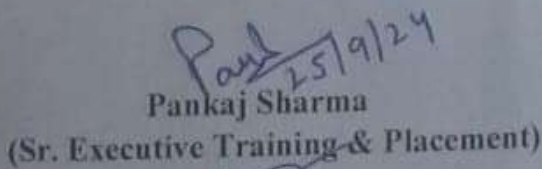 25/9/24
Pankaj Sharma
(Sr. Executive Training & Placement)